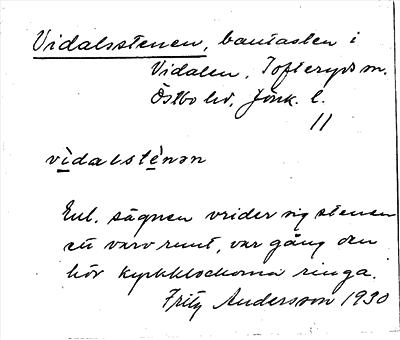 Vidalsstenen, bautasten i
Vidalen, Tofteryds sn.
Östbo hd, Jönk. l.
11
vìdalstènən
Enl. sägnen vrider sig stenen
ett varv runt, var gång den
hör kyrkklockorna ringa.
Fritz Andersson 1930